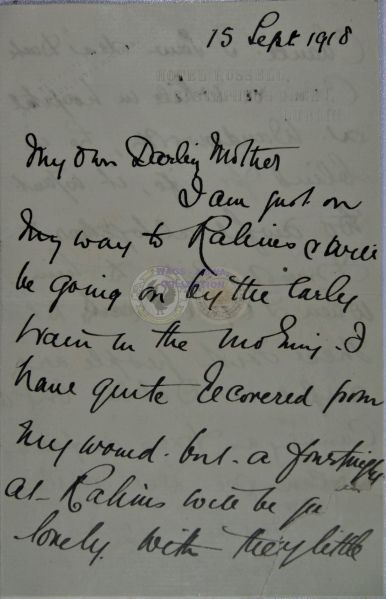 15 Sept 1918
My own Darling Mother
I am just on
my way to Rahines & will
be going on by the early
train in the morning. I
have quite recovered from
my wound. but a
at Rahins will be
lovely. with the little